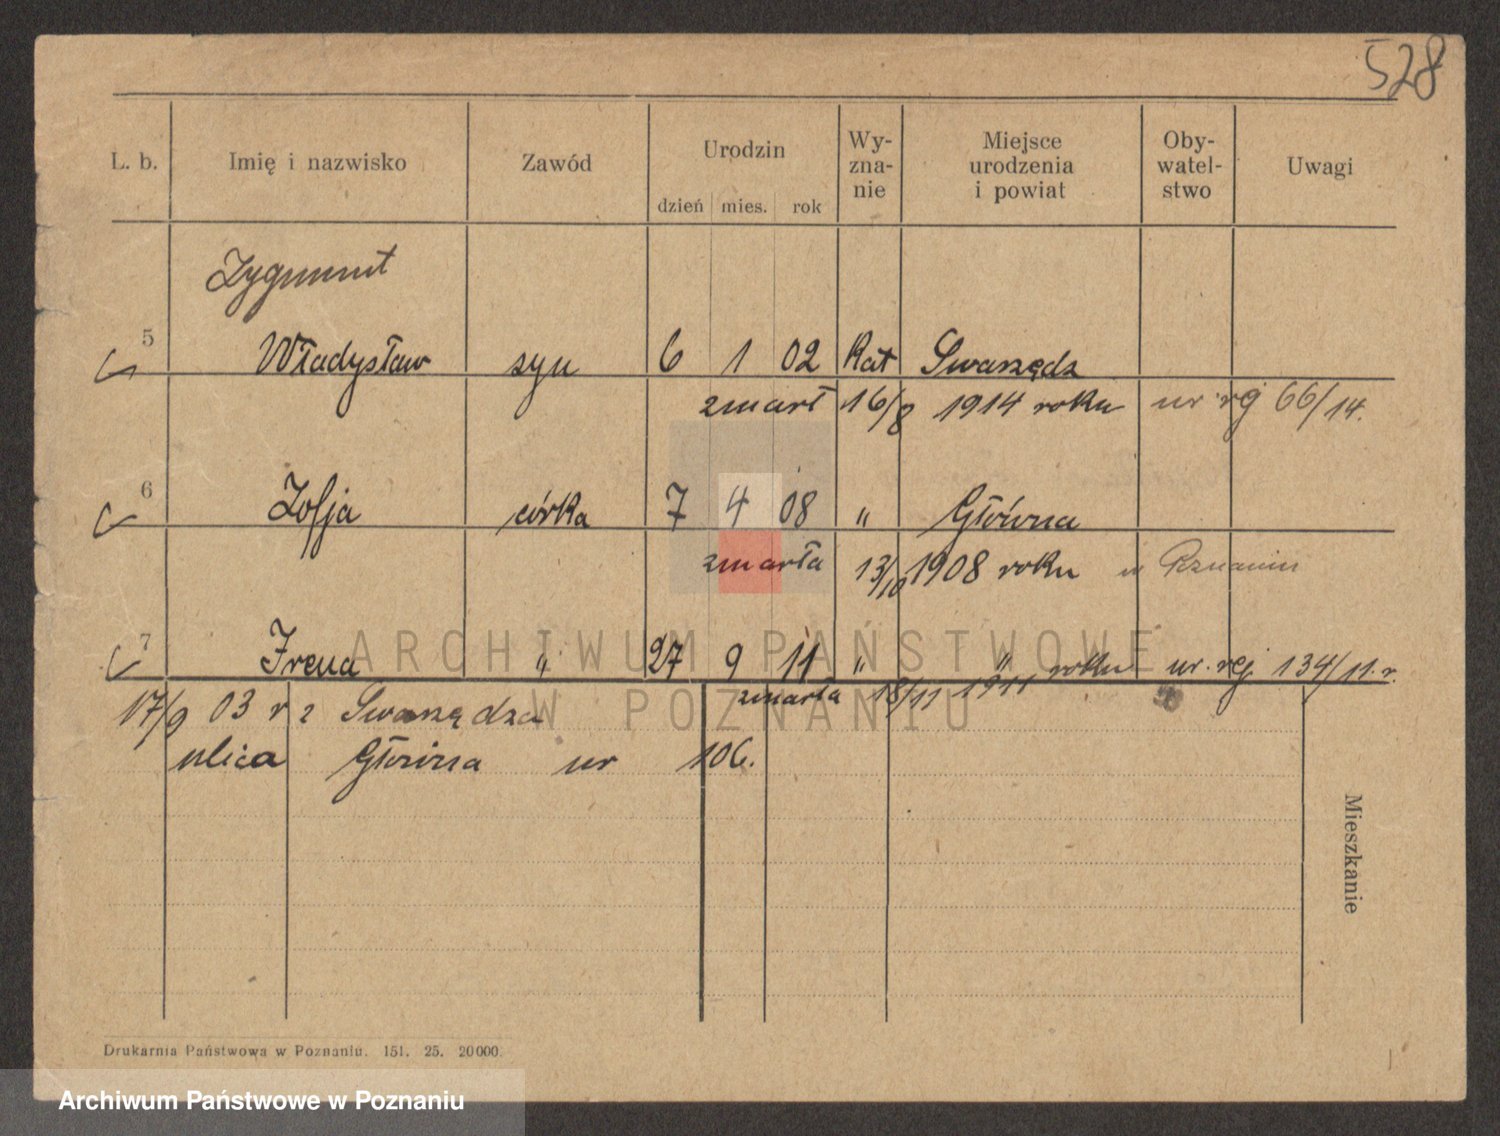 528
L. b. Imię i nazwisko Zawód Urodzin dzień mies. rok Wy-zna-nie Miejsce urodzenia i powiat Oby-watel-stwo Uwagi
Zygmunt
5 Władysław syn 6 1 02 Kat Swarzędz
zmarł 16/8 1914 roku nr rej 66/14.
6 Zofja córka 7 4 08 " Główna
zmarła 13/10 1908 roku w Poznaniu
7 Irena " 27 9 11 " "
zmarła 18/11 1911 roku nr. rej 134/11. r.
17/9 03 r z Swarzędza
ulica Główna nr 106.
Mieszkanie
ARCHIWUM PAŃSTWOWE
W POZNANIU
Drukarnia Państwowa w Poznaniu. 151. 25. 20000.
Archiwum Państwowe w Poznaniu